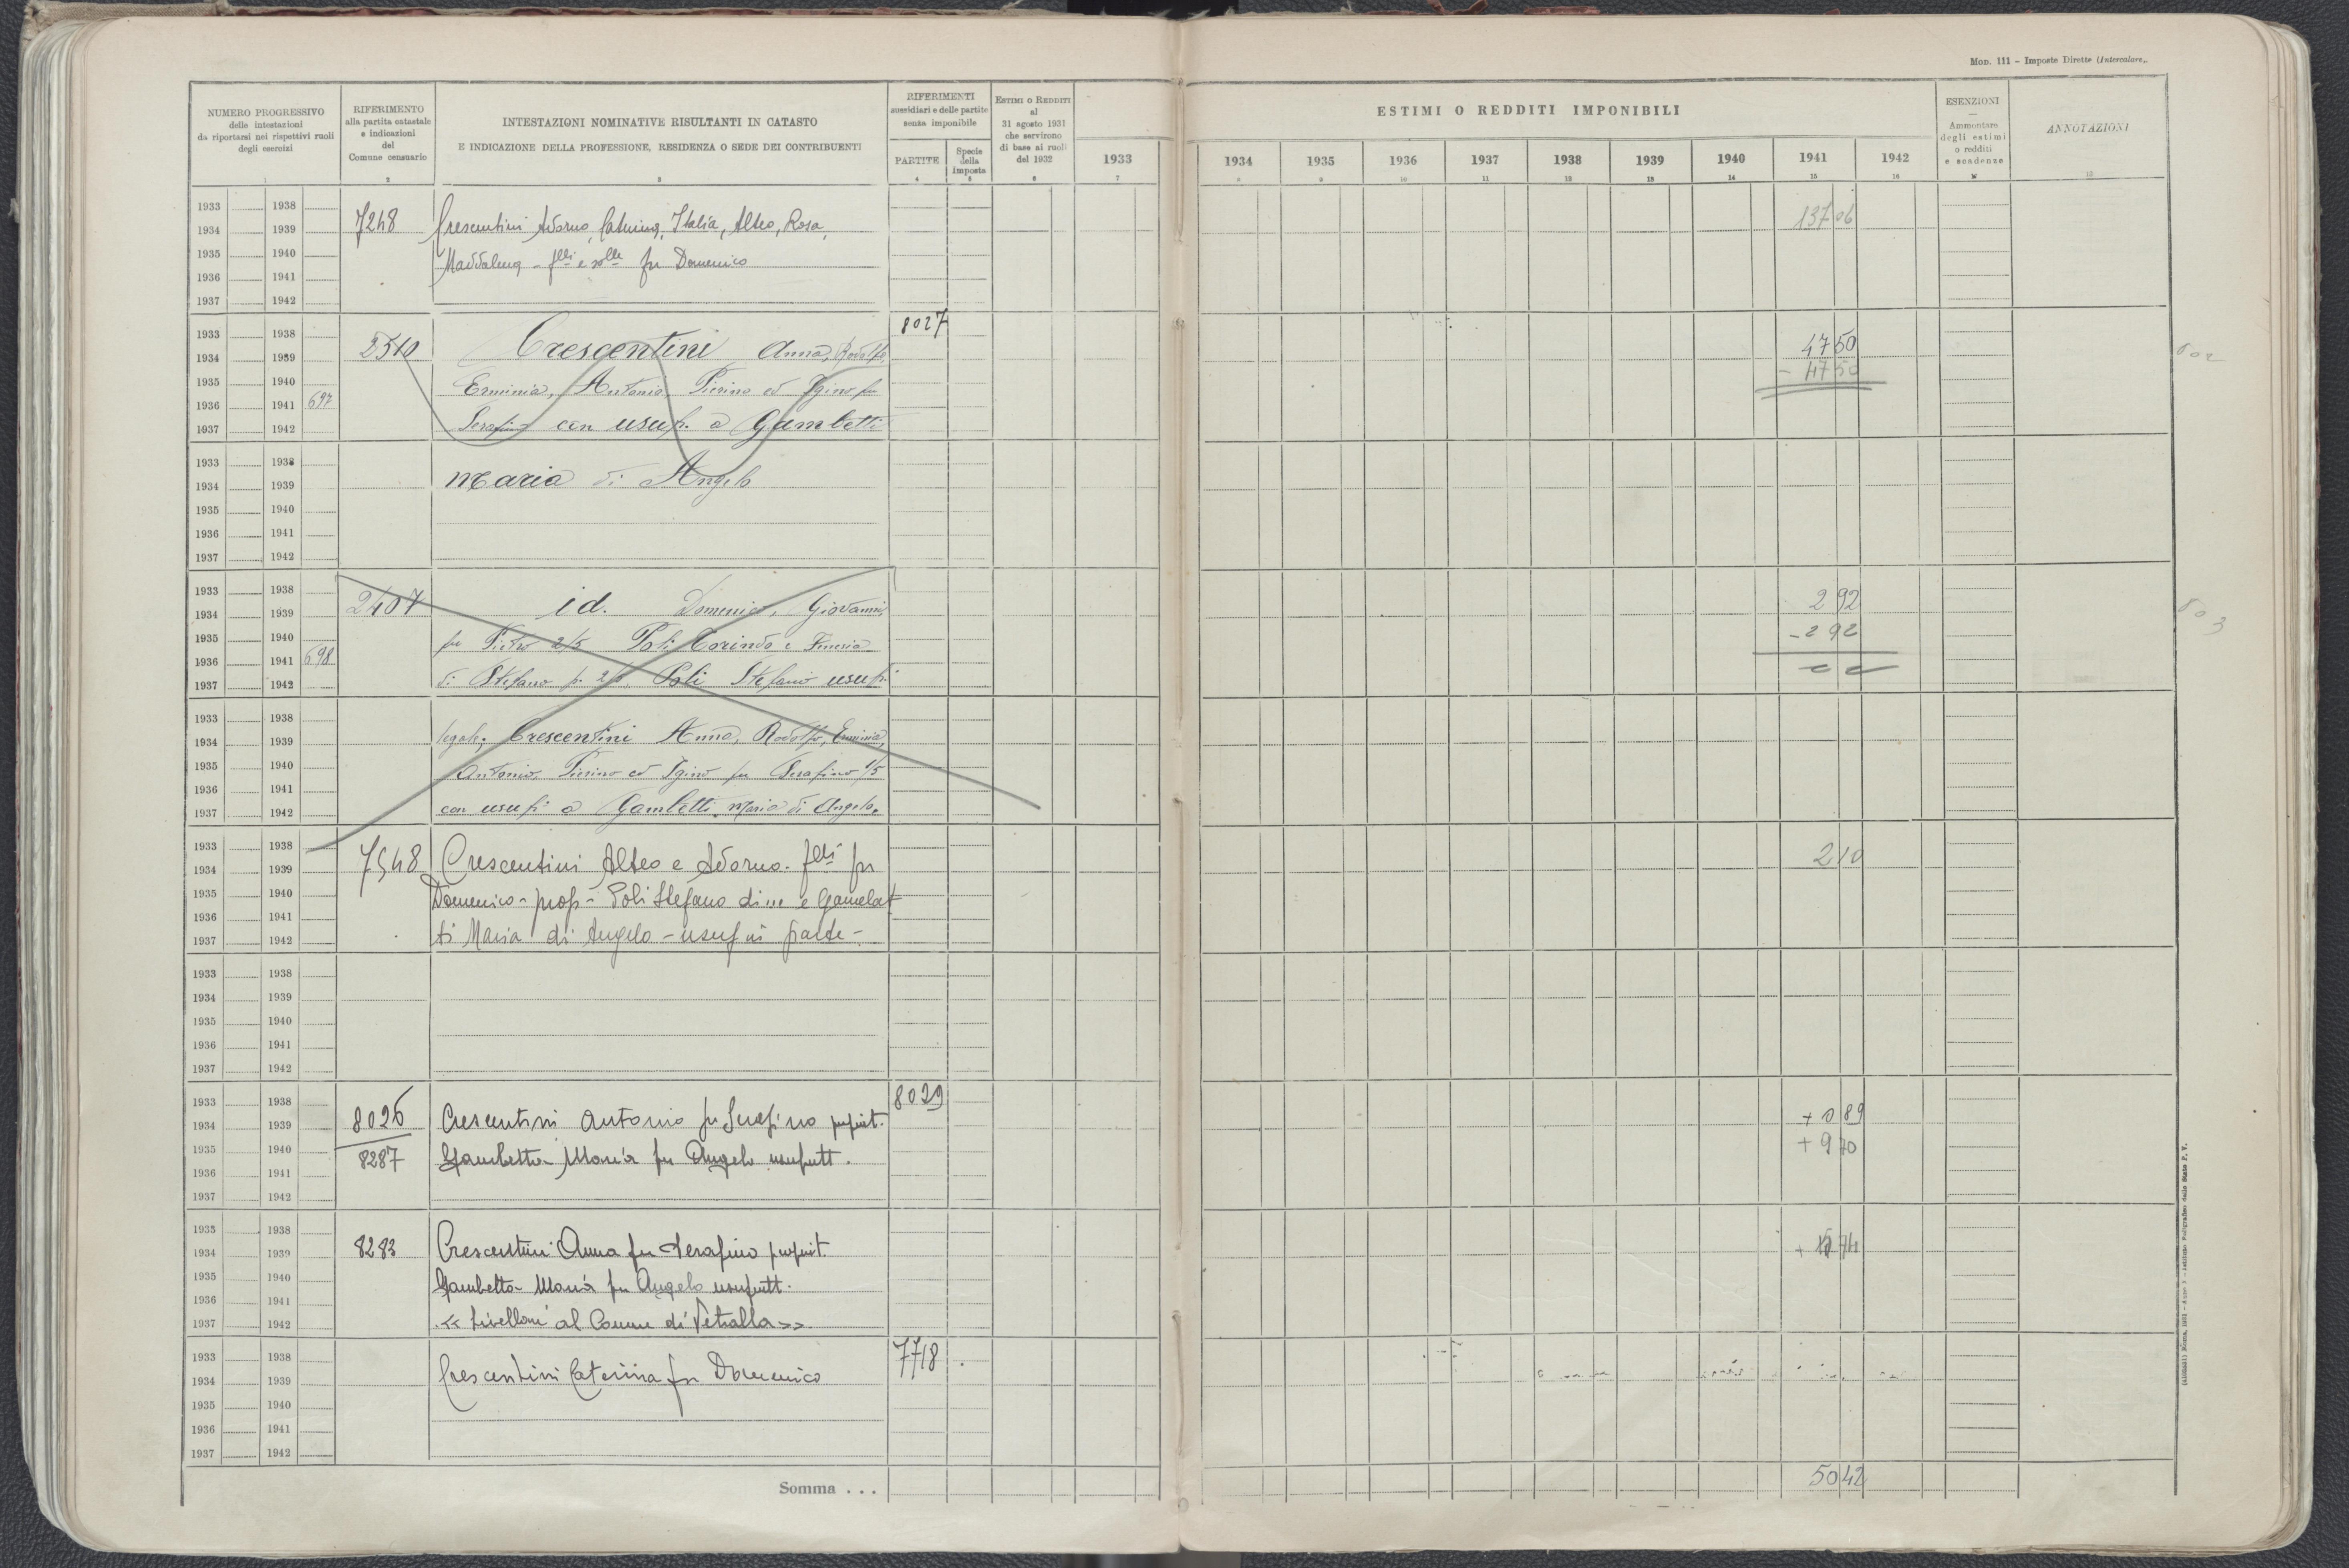 Mod. 111 – Imposte Dirette (Intercalare,
NUMERO PROGRESSIVO
delle intestazioni
da riportarsi nei rispettivi ruoli
degli esercizi
RIFERIMENTO
alla partita catastale
e indicazioni
del
Comune censuario
INTESTAZIONI NOMINATIVE RISULTANTI IN CATASTO
E INDICAZIONE DELLA PROFESSIONE, RESIDENZA O SEDE DEI CONTRIBUENTI
RIFERIMENTI
sussidiari e delle partite
senza imponibile
PARTITE
Specie
della
imposta
Estimi o Redditi
al
31 agosto 1931
che servirono
di base ai ruoli
del 1932
ESTIMI O REDDITI IMPONIBILI
1933 1934 1935 1936 1937 1938 1939 1940 1941 1942
ESENZIONI
Ammontare
degli estimi
o redditi
e scadenze
ANNOTAZIONI
1 2 3 4 5 6 7 8 9 10 11 12 13 14 15 16
1933 1938
1934 1939 7248 Crescentini Adorno, Caterina, Italia, Alteo, Rosa, 137 06
1935 1940 Maddalena – flli e solle fu Domenico
1936 1941
1937 1942
1933 1938 8027
1934 1939 2510 Crescentini Anna, Rodolfo, 47 50
1935 1940 Erminia, Antonio, Pierino ed Igino fu – 47 50
1936 1941 697
1937 1942 Serafino con usuf. a Gambetti
1933 1938
1934 1939 Maria di Angelo
1935 1940
1936 1941
1937 1942
1933 1938
1934 1939 2407 id. Domenico, Giovanni 2 92
1935 1940 fu Pietro 2/5 Poli Corindo e Finesia – 2 92
1936 1941 698
1937 1942 di Stefano p. 2/5, Poli Stefano usuf.
1933 1938
1934 1939 legale; Crescentini Anna, Rodolfo, Erminia,
1935 1940 Antonio, Pierino ed Igino fu Serafino 1/5
1936 1941
1937 1942 con usuf. a Gambetti Maria di Angelo.
1933 1938
1934 1939 7548 Crescentini Alteo e Adorno – flli fu 2 10
1935 1940 Domenico – prop – Poli Stefano di ... e Gambet
1936 1941
1937 1942 ti Maria di Angelo – usuf in parte –
1933 1938
1934 1939
1935 1940
1936 1941
1937 1942
1933 1938 8029
1934 1939 8026 Crescentini Antonio fu Serafino propriet. + 0 89
1935 1940 8287 Gambetta Maria fu Angelo usufrutt. + 9 70
1936 1941
1937 1942
1933 1938
1934 1939 8283 Crescentini Anna fu Serafino propriet.
1935 1940 Gambetta Maria fu Angelo usufrutt.
1936 1941
1937 1942 << Livellari al Comune di Vetralla >>
1933 1938 7718
1934 1939 Crescentini Caterina fu Domenico
1935 1940
1936 1941
1937 1942
Somma . . . 50 42